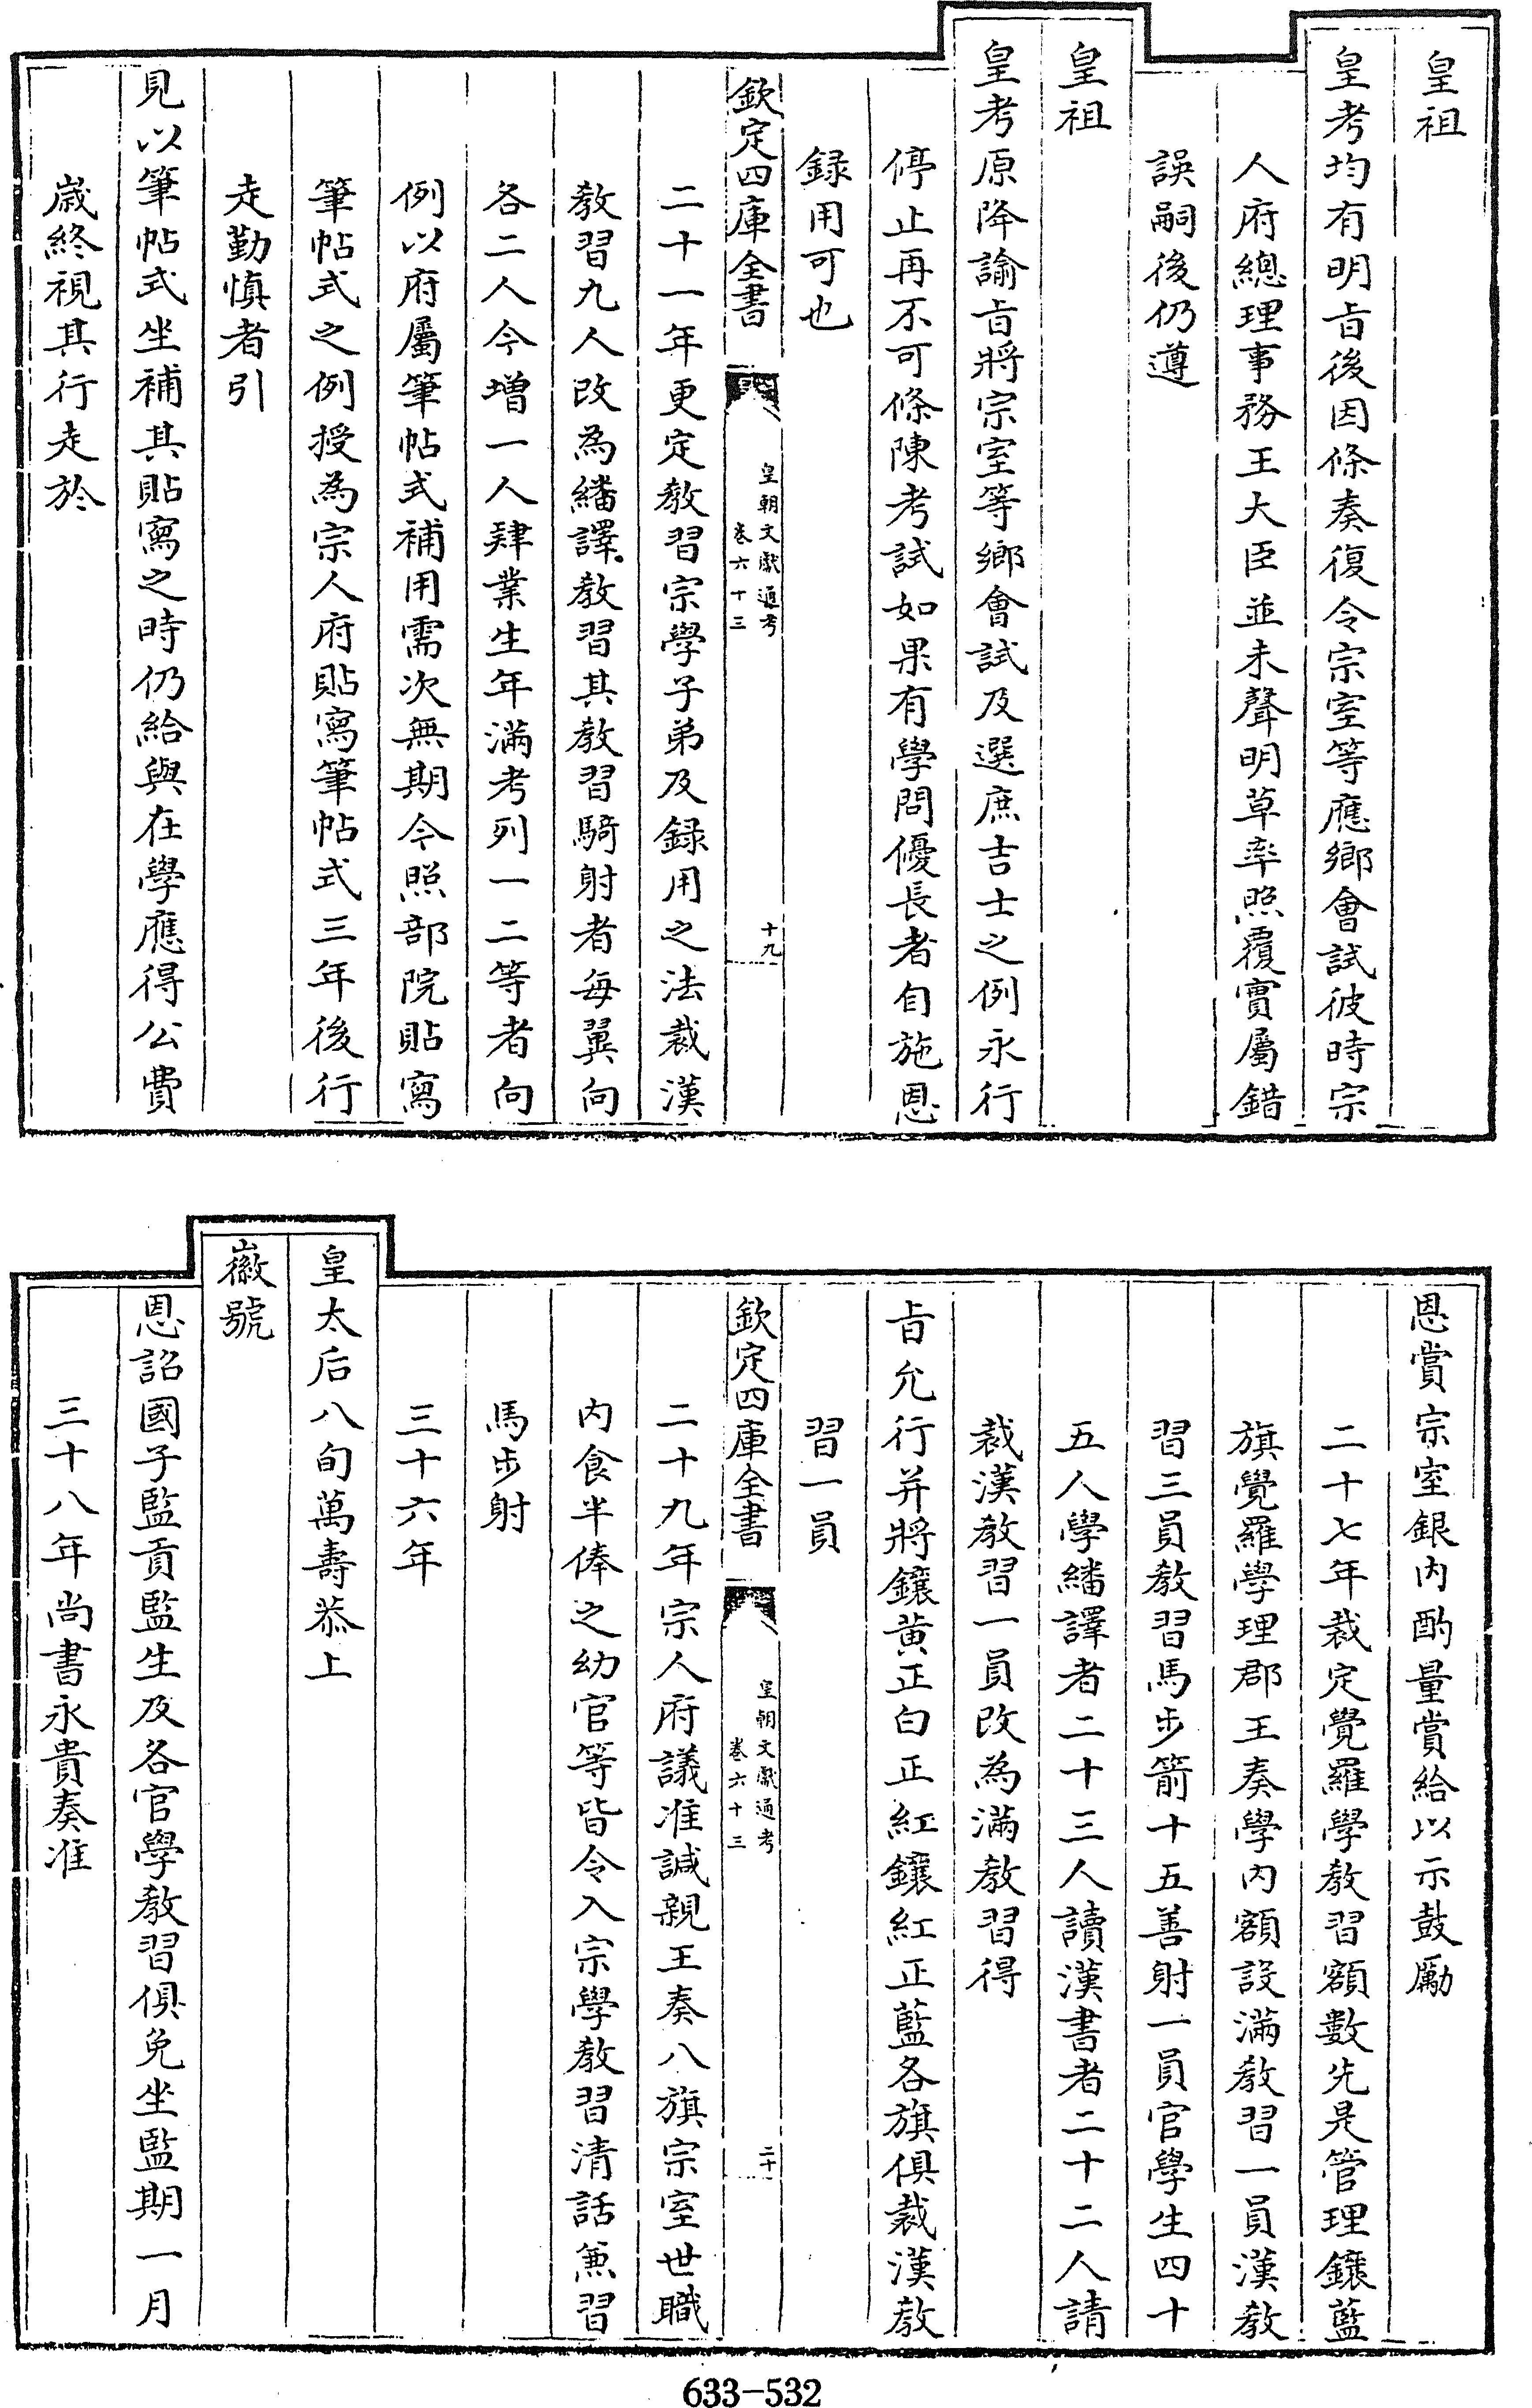 皇祖
皇考均有明㫖後因條奏復令宗室等應鄉會試彼時宗
人府總理事務王大臣並未聲明草率照覆實屬錯
誤嗣後仍遵
皇祖
皇考原降諭㫖將宗室等鄉會試及選庶吉士之例永行
停止再不可條陳考試如果有學問優長者自施恩
録用可也
欽定四庫全書
皇朝文獻通考
卷六十三
十九
二十一年更定教習宗學子弟及録用之法裁漢
教習九人改為繙譯教習其教習騎射者每翼向
各二人今增一人肄業生年滿考列一二等者向
例以府屬筆帖式補用需次無期今照部院貼寫
筆帖式之例授為宗人府貼寫筆帖式三年後行
走勤慎者引
見以筆帖式坐補其貼寫之時仍給與在學應得公費
嵗終視其行走於
恩賞宗室銀内酌量賞給以示鼓勵
二十七年裁定覺羅學教習額數先是管理鑲藍
旗覺羅學理郡王奏學内額設滿教習一員漢教
習三員教習馬步箭十五善射一員官學生四十
五人學繙譯者二十三人讀漢書者二十二人請
裁漢教習一員改為滿教習得
㫖允行并將鑲黃正白正紅鑲紅正藍各旗俱裁漢教
習一員
欽定四庫全書
皇朝文獻通考
卷六十三
二十
二十九年宗人府議准諴親王奏八旗宗室世職
内食半俸之幼官等皆令入宗學教習清話兼習
馬步射
三十六年
皇太后八旬萬壽恭上
徽號
恩詔國子監貢監生及各官學教習俱免坐監期一月
三十八年尚書永貴奏准
633-532